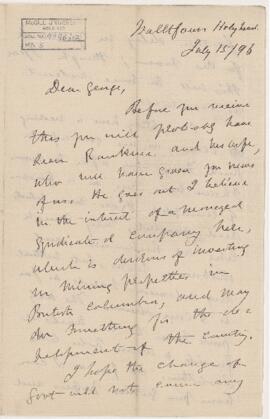 Holyhead.
July 15/96
Dear George,
Before you receive
this you will probably have
seen and his wife,
who will have given you news
of us. He goes out I believe
in the interest of a moneyed
Syndicate or Company here,
which is desirous of investing
in Mining properties in
British Columbia, and may
do something for the de-
velopment of the country.
I hope the change of
Govt will not cause any